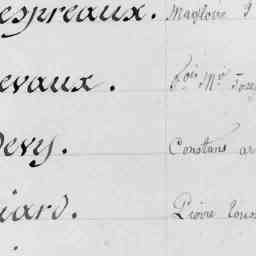 espreaux. Magloire
evaux. fois Mie Josep
Devy. Constant ar
iard. Pierre Louis